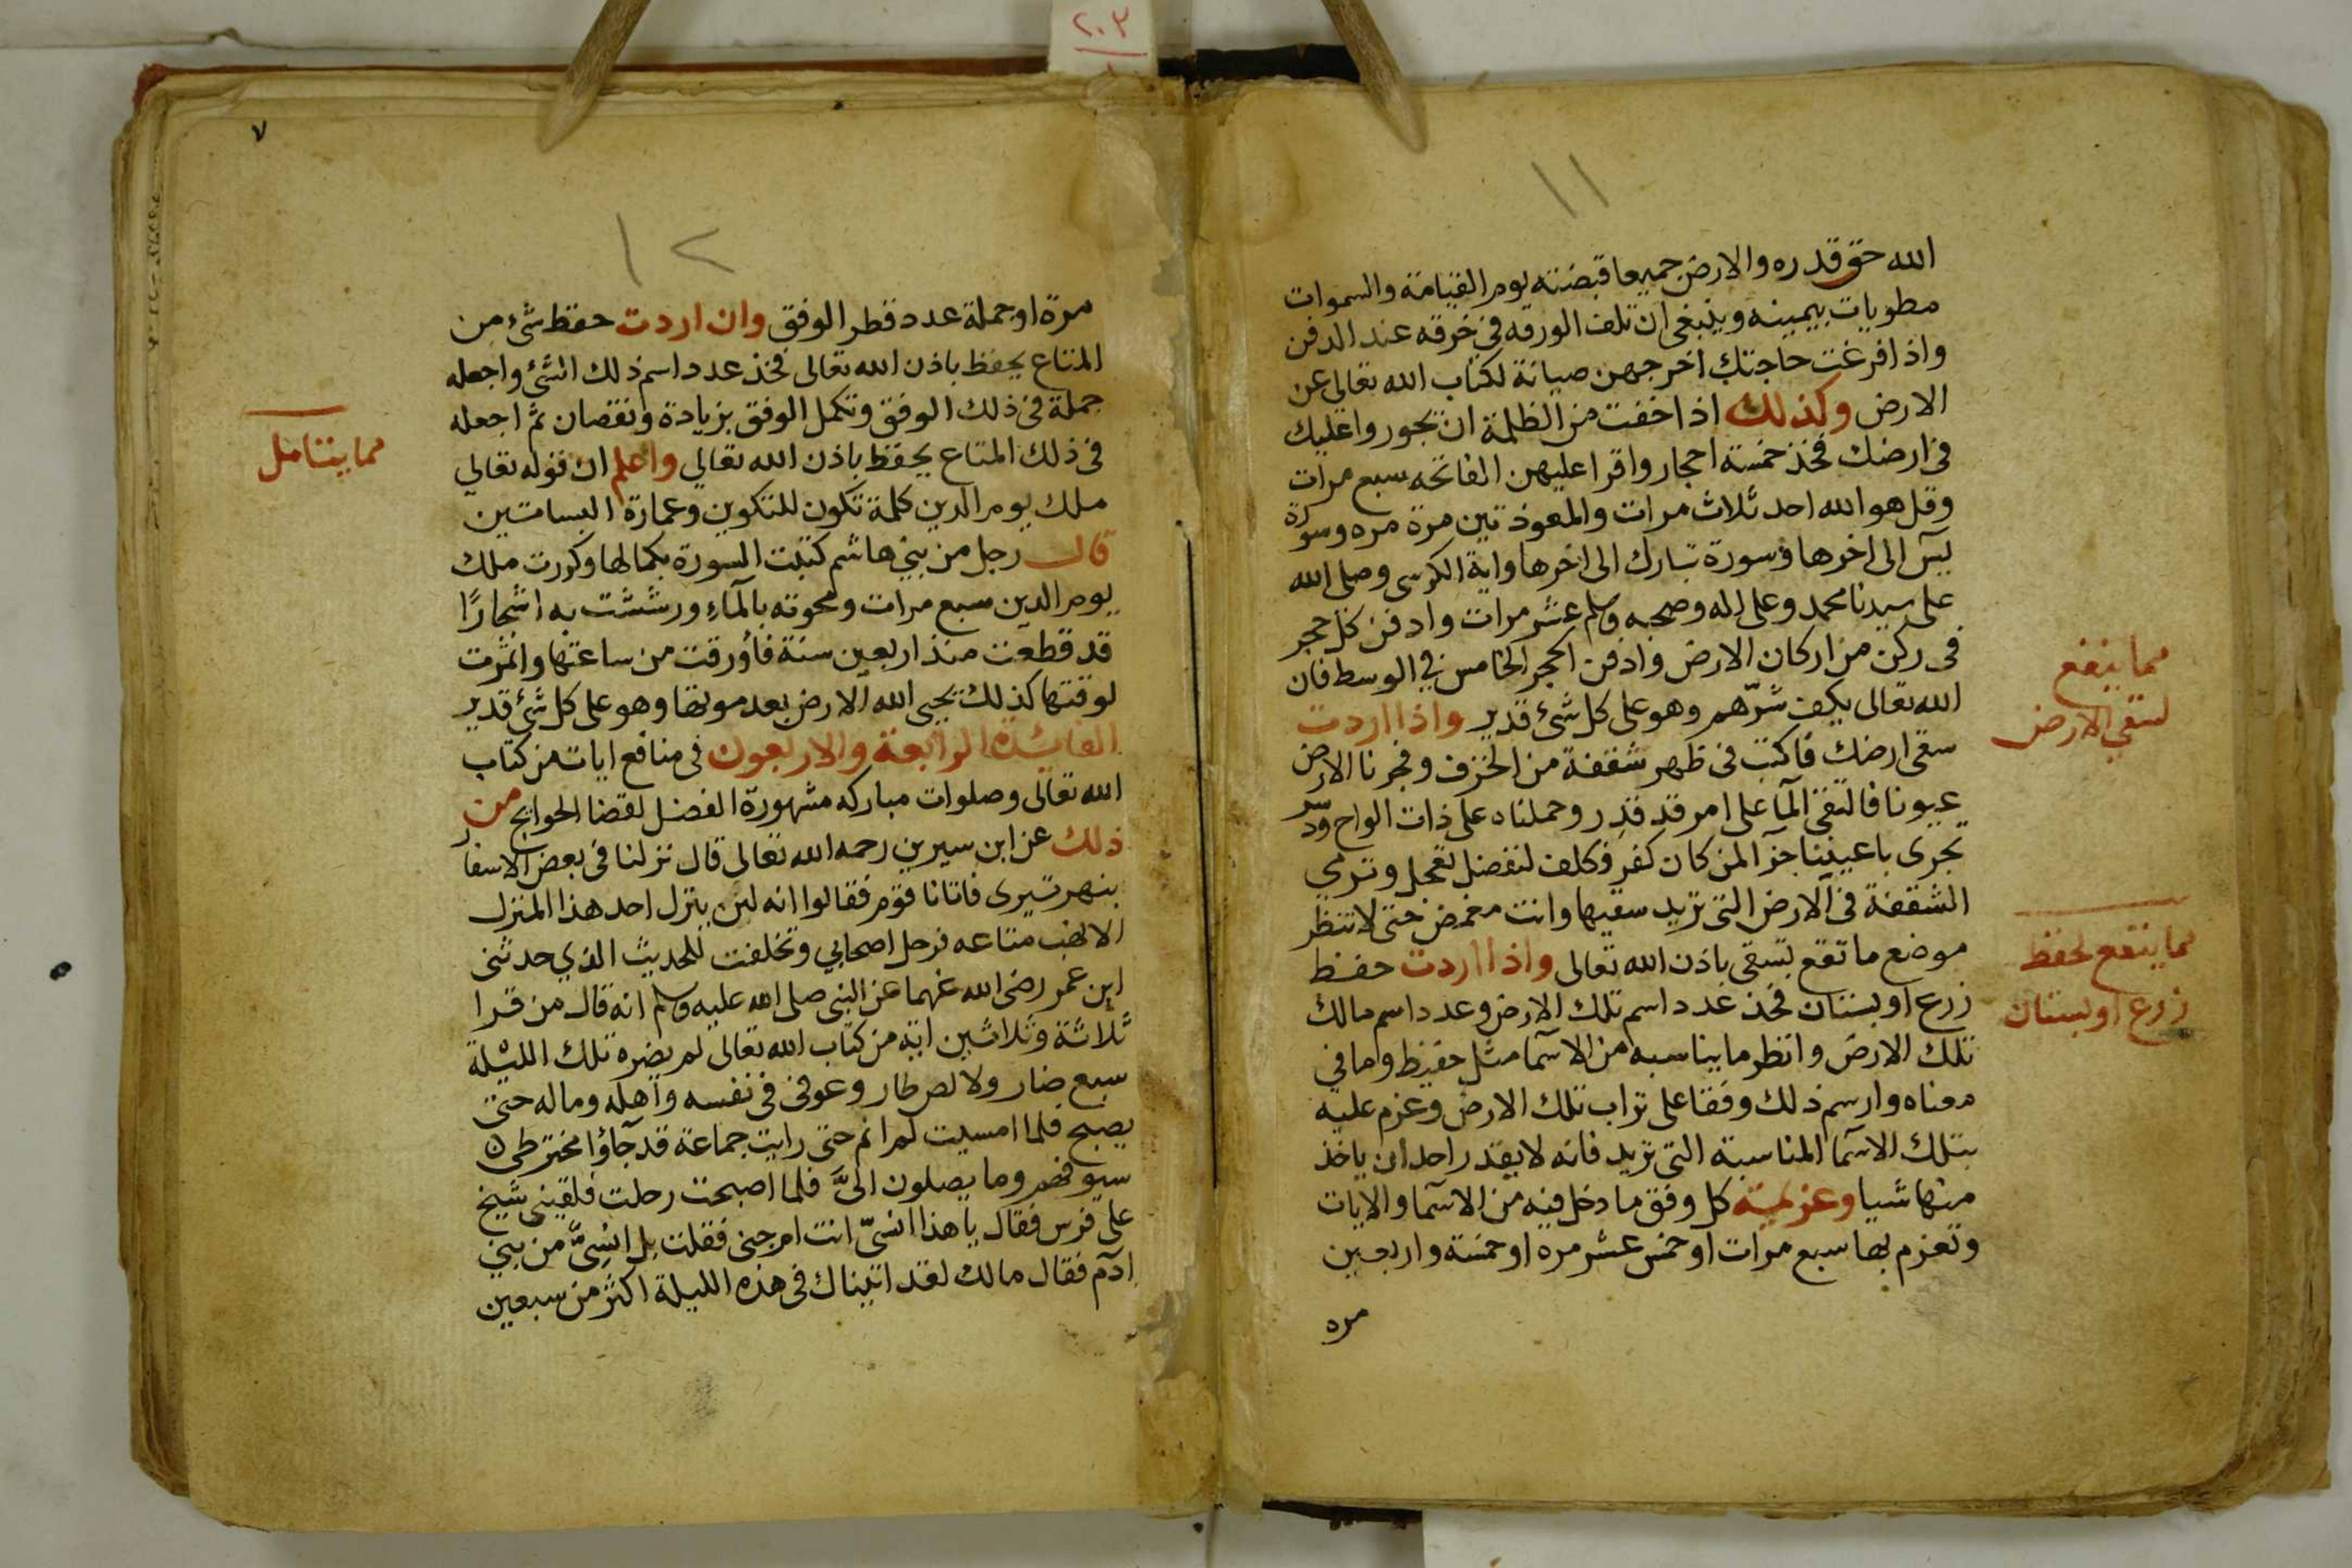 ٢٠٣
١١
الله حق قدره والارض جميعا قبضته يوم القيامة والسموات
مطويات بيمينه وينبغي ان تلف الورقه في خرقه عند الدفن
واذا فرغت حاجتك اخرجهن صيانة لكتاب الله تعالى عن
الارض وكذلك اذا خفت من الظلمة ان يجوروا عليك
في ارضك فخذ خمسة احجار واقرا عليهن الفاتحه سبع مرات
وقل هو الله احد ثلاث مرات والمعوذتين مرة مره وسورة
يس الى اخرها وسورة تبارك الى اخرها واية الكرسي وصلى الله
على سيدنا محمد وعلى اله وصحبه وسلم عشر مرات وادفن كل حجر
في ركن من اركان الارض وادفن الحجر الخامس في الوسط فان
الله تعالى يكف شرّهم وهو على كل شئ قدير واذا اردت
سقى ارضك فاكتب في ظهر شقفة من الخزف وفجرنا الارض
عيونا فالتقى المآ على امر قد قدر وحملناه على ذات الواح ودسر
تجري باعيننا جزآ لمن كان كفر
الشقفة في الارض التي تريد سقيها وانت مغمض حتى لا تنظر
موضع ما تقع تسقى باذن الله تعالى واذا اردت حفظ
زرع او بستان فخذ عدد اسم تلك الارض وعدد اسم مالك
تلك الارض وانظر ما يناسبه من الاسما مثل حفيظ وما في
معناه وارسم ذلك وفقا على تراب تلك الارض وعزم عليه
بتلك الاسما المناسبة التي تريد فانه لا يقدر احد ان ياخذ
منها شيا وعزيمة كل وفق ما دخل فيه من الاسما والايات
وتعزم بها سبع مرات او خمس عشر مره او خمسة واربعين
مره
مما ينفع
لسقي الارض
مما ينفع لحفظ
زرع او بستان
٧
١٢
مرة او جملة عدد قطر الوفق وان اردت حفظ شئ من
المتاع يحفظ باذن الله تعالى فخذ عدد اسم ذلك الشئ واجعله
جملة في ذلك الوفق وتكمل الوفق بزيادة ونقصان ثم اجعله
في ذلك المتاع يحفظ باذن الله تعالى واعلم ان قوله تعالى
ملك يوم الدين كلمة تكون للتكوين وعمارة البساتين
قال رجل من بني هاشم كتبت السورة بكمالها وكررت ملك
يوم الدين سبع مرات ومحوته بالمآء ورششت به اشجارًا
قد قطعت منذ اربعين سنة فأورقت من ساعتها واثمرت
لوقتها كذلك يحيى الله الارض بعد موتها وهو على كل شئ قدير
الفائدة الرابعة والاربعون في منافع ايات من كتاب
الله تعالى وصلوات مباركه مشهورة الفضل لقضا الحوايج من
ذلك عن ابن سيرين رحمه الله تعالى قال نزلنا في بعض الاسفار
بنهر تيرى فاتانا قوم فقالوا انه لن ينزل احد هذا المنزل
الا نهب متاعه فرحل اصحابي وتخلفت للحديث الذي حدثني
ابن عمر رضى الله عنهما عن النبي صلى الله عليه وسلم انه قال من قرا
ثلاثة وثلاثين اية من كتاب الله تعالى لم يضره تلك الليلة
سبع ضار ولا لص طار وعوفى في نفسه واهله وماله حتى
يصبح فلما امسيت لم انم حتى رايت جماعة قد جآؤا مخترطين
سيوفهم وما يصلون الىّ فلما اصبحت رحلت فلقيني شيخ
على فرس فقال يا هذا انسىّ انت ام جني فقلت بل انسِىّ من بني
ادم فقال مالك لقد اتيناك في هذه الليلة اكثر من سبعين